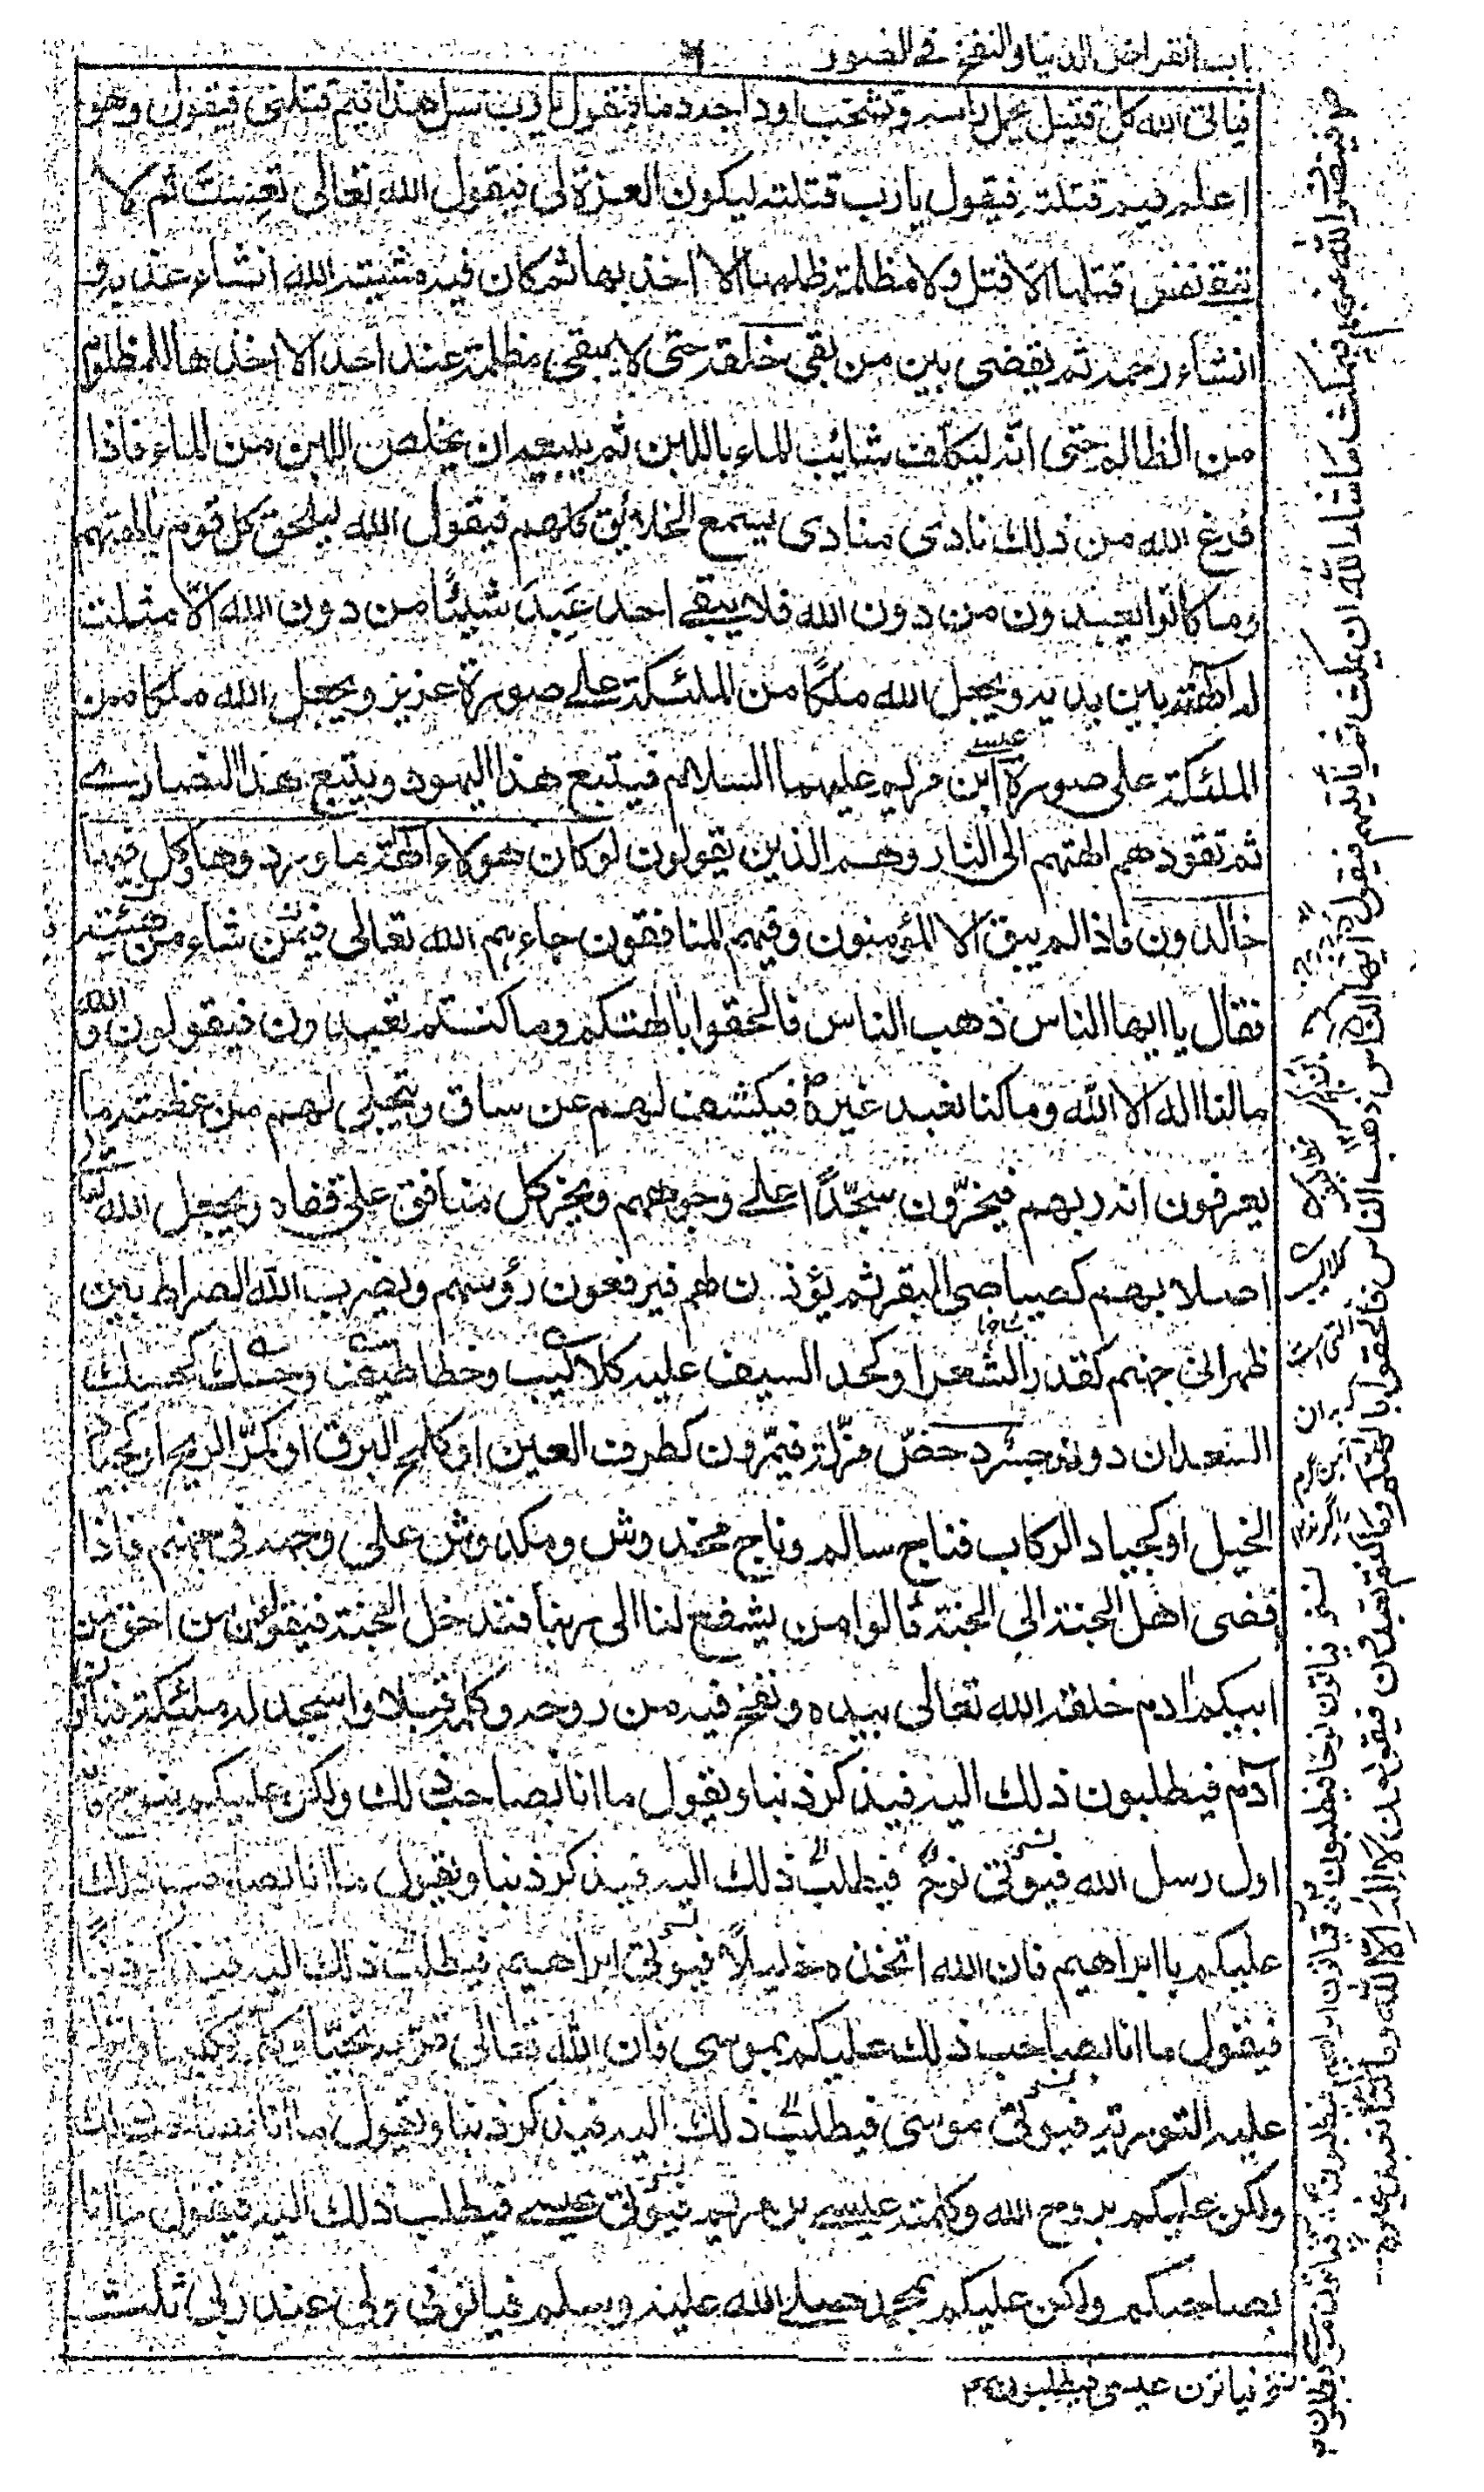 باب انقراض الدنيا والنفخ في الصور
فياتى الله كل قتيل يحمل راسه وتشخب اوداجه دما فيقول يا رب سل هذا فيم قتلنى فيقول وهو
اعلم فيم قتلته فيقول يا رب قتلته ليكون العزة لى فيقول الله تعالى تعست ثم لا
تبقى نفس قتلها الا قتل ولا مظلمة ظلمها الا اخذ بها ثم كان فيه مشيئة الله انشاء عذبه و
انشاء رحمه ثم يقضى بين من بقى خلقه حتى لا يبقى مظلمة عند احد الا اخذها للمظلوم
من الظالم حتى انه ليكلف شائب الماء باللبن ثم يبيعه ان يخلص اللبن من الماء فاذا
فرغ الله من ذلك نادى منادى يسمع الخلائق كلهم فيقول الله ليلحق كل قوم بالهتهم
وما كانوا يعبدون من دون الله فلا يبقى احد عبد شيئًا من دون الله الا مثلت
له الهته بين يديه ويجعل الله ملكًا من الملئكة على صورة عزير ويجعل الله ملكا من
الملئكة على صورة عيسى ابن مريم عليهما السلام فيتبع هذا اليهود ويتبع هذا النصارى
ثم تقودهم الهتهم الى النار وهم الذين يقولون لو كان هولاء الهة ما وردوها وكل فيها
خالدون فاذا لم يبق الا المؤمنون وفيهم المنافقون جاءهم الله تعالى فيمن شاء من هيئته
فقال يا ايها الناس ذهب الناس فالحقوا بالهتكم وما كنتم تعبدون فيقولون والله
ما لنا اله الا الله وما كنا نعبد غيره فيكشف لهم عن ساق ويتجلى لهم من عظمته ما
يعرفون انه ربهم فيخرّون سجّدًا على وجوههم ويخر كل منافق على قفاه ويجعل الله
اصلابهم كصياصى البقر ثم يؤذن لهم فيرفعون رؤسهم ويضرب الله الصراط بين
ظهرانى جهنم كقدر الشعر او كحد السيف عليه كلاليب وخطاطيف وحسك كحسك
السعدان دونه جسر دحض مزلة فيمرّون كطرف العين او كلمح البرق او كمرّ الريح او كجياد
الخيل او كجياد الركاب فناج سالم وناج مخدوش ومكدوش على وجهه فى جهنم فاذا
قضى اهل الجنة الى الجنة قالوا من يشفع لنا الى ربنا فندخل الجنة فيقولون من احق من
ابيكم ادم خلقه الله تعالى بيده ونفخ فيه من روحه وكلمه قبلا واسجد له ملئكته
آدم فيطلبون ذلك اليه فيذكر ذنبا ويقول ما انا بصاحب ذلك ولكن عليكم بنوح
اول رسل الله فيؤتى نوح فيطلب ذلك اليه فيذكر ذنبا ويقول ما انا بصاحب ذلك
عليكم بابراهيم فان الله اتخذه خليلًا فيؤتى ابراهيم فيطلب ذلك اليه فيذكر ذنبًا
فيقول ما انا بصاحب ذلك عليكم بموسى فان الله تعالى قربه نجيّا وكلمه
عليه التورية فيؤتى موسى فيطلب ذلك اليه فيذكر ذنبا ويقول ما انا بصاحب ذلك
ولكن عليكم بروح الله وكلمته عيسى بن مريم فيؤتى عيسى فيطلب ذلك اليه فيقول ما انا
بصاحبكم ولكن عليكم بمحمد صلى الله عليه وسلم فياتونى ولى عند ربى ثلث
فياتون عيسى فيطلبون
ثم ياتيهم فيقول ايها الناس ذهب الناس فالحقوا بالهتكم وما كنتم تعبدون فيقولون لا اله الا الله وما كنا نعبد غيره